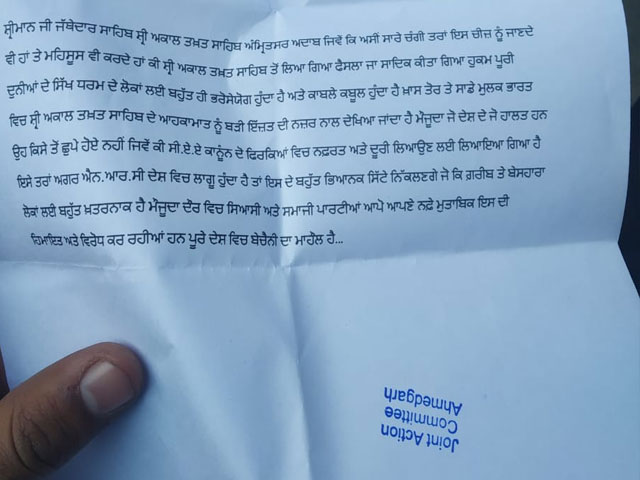 ਸ਼੍ਰੀਮਾਨ ਜੀ ਜੱਥੇਦਾਰ ਸਾਹਿਬ ਸ਼੍ਰੀ ਅਕਾਲ ਤਖ਼ਤ ਸਾਹਿਬ ਅੰਮ੍ਰਿਤਸਰ ਅਦਾਬ ਜਿਵੇਂ ਕਿ ਅਸੀਂ ਸਾਰੇ ਚੰਗੀ ਤਰਾਂ ਇਸ ਚੀਜ਼ ਨੂੰ ਜਾਣਦੇ
ਵੀ ਹਾਂ ਤੇ ਮਹਿਸੂਸ ਵੀ ਕਰਦੇ ਹਾਂ ਕੀ ਸ਼੍ਰੀ ਅਕਾਲ ਤਖ਼ਤ ਸਾਹਿਬ ਤੋਂ ਲਿਆ ਗਿਆ ਫੈਸਲਾ ਜਾ ਸਾਦਿਕ ਕੀਤਾ ਗਿਆ ਹੁਕਮ ਪੂਰੀ
ਦੁਨੀਆਂ ਦੇ ਸਿੱਖ ਧਰਮ ਦੇ ਲੋਕਾਂ ਲਈ ਬਹੁੱਤ ਹੀ ਭਰੋਸੇਯੋਗ ਹੁੰਦਾ ਹੈ ਅਤੇ ਕਾਬਲੇ ਕਬੂਲ ਹੁੰਦਾ ਹੈ ਖ਼ਾਸ ਤੋਰ ਤੇ ਸਾਡੇ ਮੁਲਕ ਭਾਰਤ
ਵਿਚ ਸ਼੍ਰੀ ਅਕਾਲ ਤਖ਼ਤ ਸਾਹਿਬ ਦੇ ਆਹਕਾਮਾਤ ਨੂੰ ਬੜੀ ਇੱਜ਼ਤ ਦੀ ਨਜ਼ਰ ਨਾਲ ਦੇਖਿਆ ਜਾਂਦਾ ਹੈ ਮੌਜੂਦਾ ਜੋ ਦੇਸ਼ ਦੇ ਜੋ ਹਾਲਤ ਹਨ
ਉਹ ਕਿਸੇ ਤੋਂ ਛੁਪੇ ਹੋਏ ਨਹੀਂ ਜਿਵੇਂ ਕੀ ਸੀ.ਏ.ਏ ਕਾਨੂੰਨ ਦੇ ਫਿਰਕਿਆਂ ਵਿਚ ਨਫ਼ਰਤ ਅਤੇ ਦੂਰੀ ਲਿਆਉਣ ਲਈ ਲਿਆਇਆ ਗਿਆ ਹੈ
ਇਸੇ ਤਰਾਂ ਅਗਰ ਐਨ.ਆਰ.ਸੀ ਦੇਸ਼ ਵਿਚ ਲਾਗੂ ਹੁੰਦਾ ਹੈ ਤਾਂ ਇਸ ਦੇ ਬਹੁੱਤ ਭਿਆਨਕ ਸਿੱਟੇ ਨਿੱਕਲਣਗੇ ਜੋ ਕਿ ਗ਼ਰੀਬ ਤੇ ਬੇਸਹਾਰਾ
ਲੋਕਾਂ ਲਈ ਬਹੁੱਤ ਖ਼ਤਰਨਾਕ ਹੈ ਮੌਜੂਦਾ ਦੌਰ ਵਿਚ ਸਿਆਸੀ ਅਤੇ ਸਮਾਜੀ ਪਾਰਟੀਆਂ ਆਪੋ ਆਪਣੇ ਨਫ਼ੇ ਮੁਤਾਬਿਕ ਇਸ ਦੀ
ਹਿਮਾਇਤ ਅਤੇ ਵਿਰੋਧ ਕਰ ਰਹੀਆਂ ਹਨ ਪੂਰੇ ਦੇਸ਼ ਵਿਚ ਬੇਚੈਨੀ ਦਾ ਮਾਹੋਲ ਹੈ...
Joint Action
Committee
Ahmedgarh